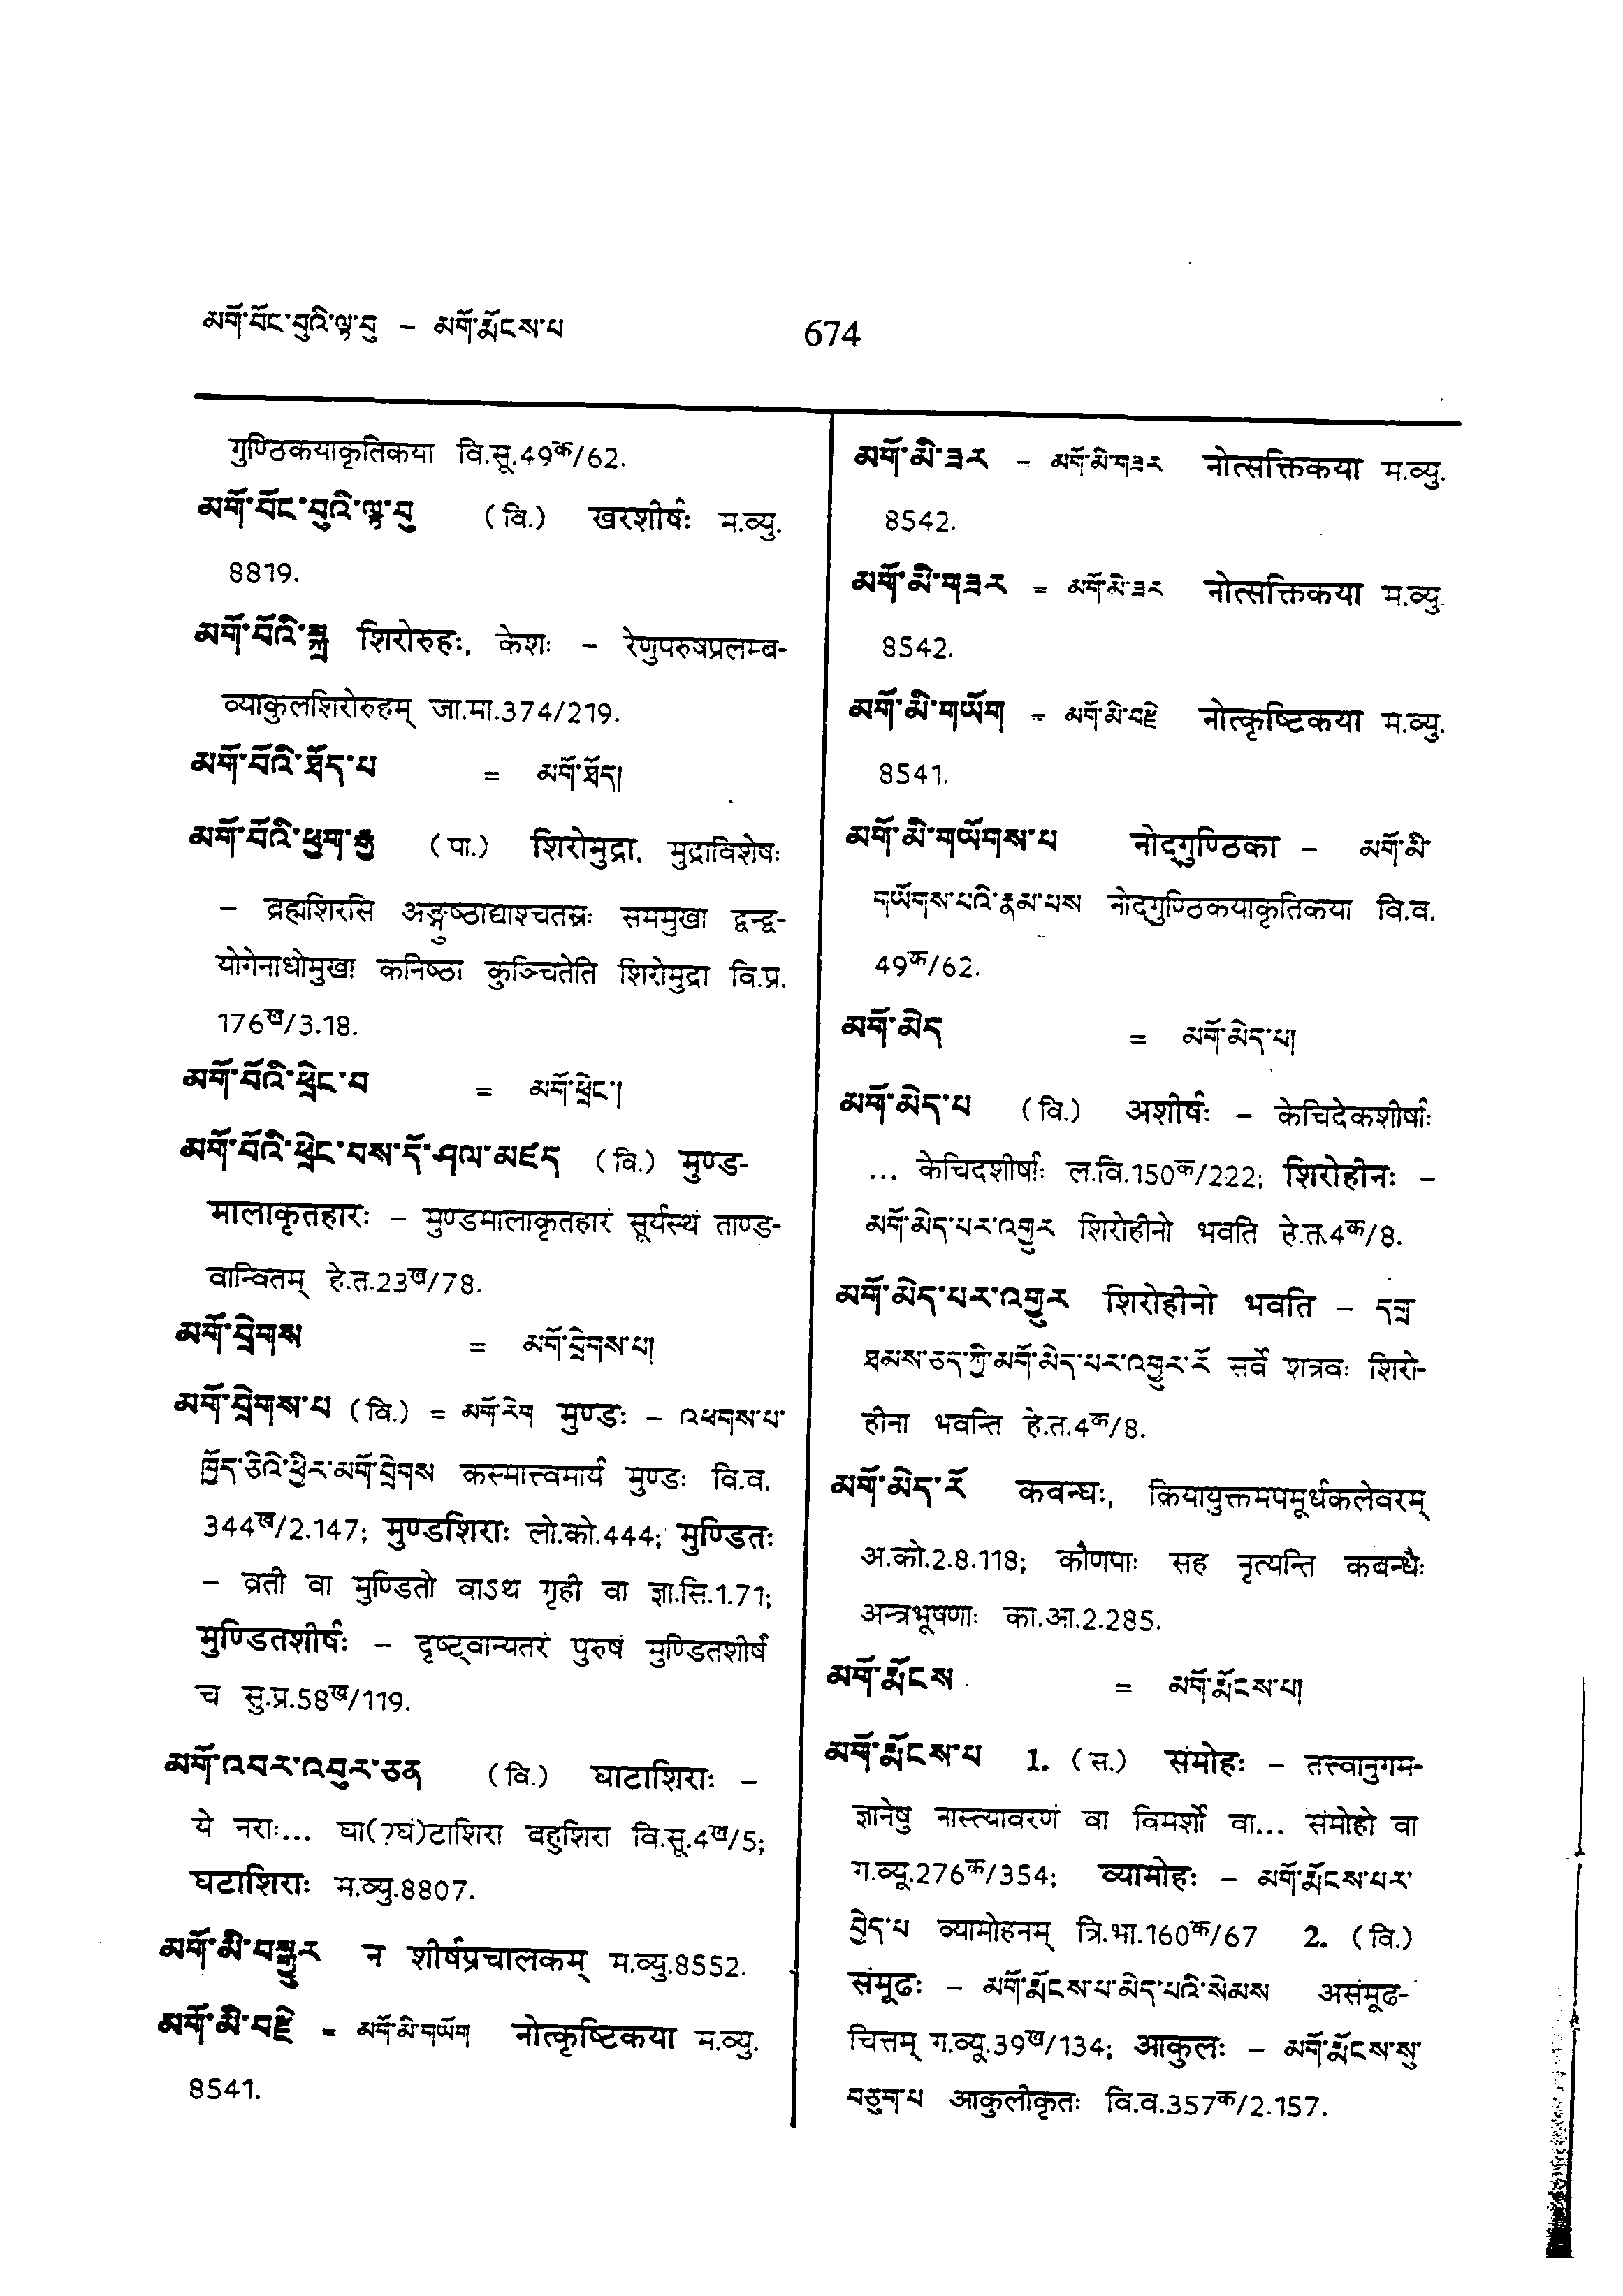 མགོ་བོང་བུའི་ལྟ་བུ – མགོ་རྨོངས་པ 674
गुण्ठिकयाकृतिकया वि.सू.49क/62.
མགོ་བོང་བུའི་ལྟ་བུ (वि.) खरशीर्षः म.व्यु.
8819.
མགོ་བོའི་སྐྲ शिरोरुहः, केशः – रेणुपरुषप्रलम्ब-
व्याकुलशिरोरुहम् जा.मा.374/219.
མགོ་བོའི་ཐོད་པ = མགོ་ཐོད།
མགོ་བོའི་ཕྱག་རྒྱ (पा.) शिरोमुद्रा, मुद्राविशेषः
– ब्रह्मशिरसि अङ्गुष्ठाद्याश्चतस्रः सममुखा द्वन्द्व-
योगेनाधोमुखा कनिष्ठा कुञ्चितेति शिरोमुद्रा वि.प्र.
176ख/3.18.
མགོ་བོའི་ཕྲེང་བ = མགོ་ཕྲེང་།
མགོ་བོའི་ཕྲེང་བས་དོ་ཤལ་མཛད (वि.) मुण्ड-
मालाकृतहारः – मुण्डमालाकृतहारं सूर्यस्थं ताण्ड-
वान्वितम् हे.त.23ख/78.
མགོ་བྲེགས = མགོ་བྲེགས་པ།
མགོ་བྲེགས་པ (वि.) = མགོ་རེག मुण्डः – འཕགས་པ་
ཁྱོད་ཅིའི་ཕྱིར་མགོ་བྲེགས कस्मात्त्वमार्य मुण्डः वि.व.
344ख/2.147; मुण्डशिराः लो.को.444; मुण्डितः
– व्रती वा मुण्डितो वाऽथ गृही वा ज्ञा.सि.1.71;
मुण्डितशीर्षः – दृष्ट्वान्यतरं पुरुषं मुण्डितशीर्षं
च सु.प्र.58ख/119.
མགོ་འབར་འབུར་ཅན (वि.) घाटाशिराः –
ये नराः... घा(?घं)टाशिरा बहुशिरा वि.सू.4ख/5;
घटाशिराः म.व्यु.8807.
མགོ་མི་བསྒྱུར न शीर्षप्रचालकम् म.व्यु.8552.
མགོ་མི་བརྫེ = མགོ་མི་གཡོག नोत्कृष्टिकया म.व्यु.
8541.
མགོ་མི་ཟར – མགོ་མི་གཟར नोत्सक्तिकया म.व्यु.
8542.
མགོ་མི་གཟར = མགོ་མི་ཟར नोत्सक्तिकया म.व्यु.
8542.
མགོ་མི་གཡོག = མགོ་མི་བརྫེ नोत्कृष्टिकया म.व्यु.
8541.
མགོ་མི་གཡོགས་པ नोद्गुण्ठिका – མགོ་མི་
གཡོགས་པའི་རྣམ་པས नोद्गुण्ठिकयाकृतिकया वि.व.
49क/62.
མགོ་མེད = མགོ་མེད་པ།
མགོ་མེད་པ (वि.) अशीर्षः – केचिदेकशीर्षाः
... केचिदशीर्षाः ल.वि.150क/222; शिरोहीनः –
མགོ་མེད་པར་འགྱུར शिरोहीनो भवति हे.त.4क/8.
མགོ་མེད་པར་འགྱུར शिरोहीनो भवति – དགྲ་
ཐམས་ཅད་ཀྱི་མགོ་མེད་པར་འགྱུར་རོ सर्वे शत्रवः शिरो-
हीना भवन्ति हे.त.4क/8.
མགོ་མེད་རོ कबन्धः, क्रियायुक्तमपमूर्धकलेवरम्
अ.को.2.8.118; कौणपाः सह नृत्यन्ति कबन्धैः
अन्त्रभूषणाः का.आ.2.285.
མགོ་རྨོངས = མགོ་རྨོངས་པ།
མགོ་རྨོངས་པ 1. (सं.) संमोहः – तत्त्वानुगम-
ज्ञानेषु नास्त्यावरणं वा विमर्शो वा... संमोहो वा
ग.व्यू.276क/354; व्यामोहः – མགོ་རྨོངས་པར་
བྱེད་པ व्यामोहनम् त्रि.भा.160क/67 2. (वि.)
संमूढः – མགོ་རྨོངས་པ་མེད་པའི་སེམས असंमूढ-
चित्तम् ग.व्यू.39ख/134; आकुलः – མགོ་རྨོངས་སུ་
བཅུག་པ आकुलीकृतः वि.व.357क/2.157.